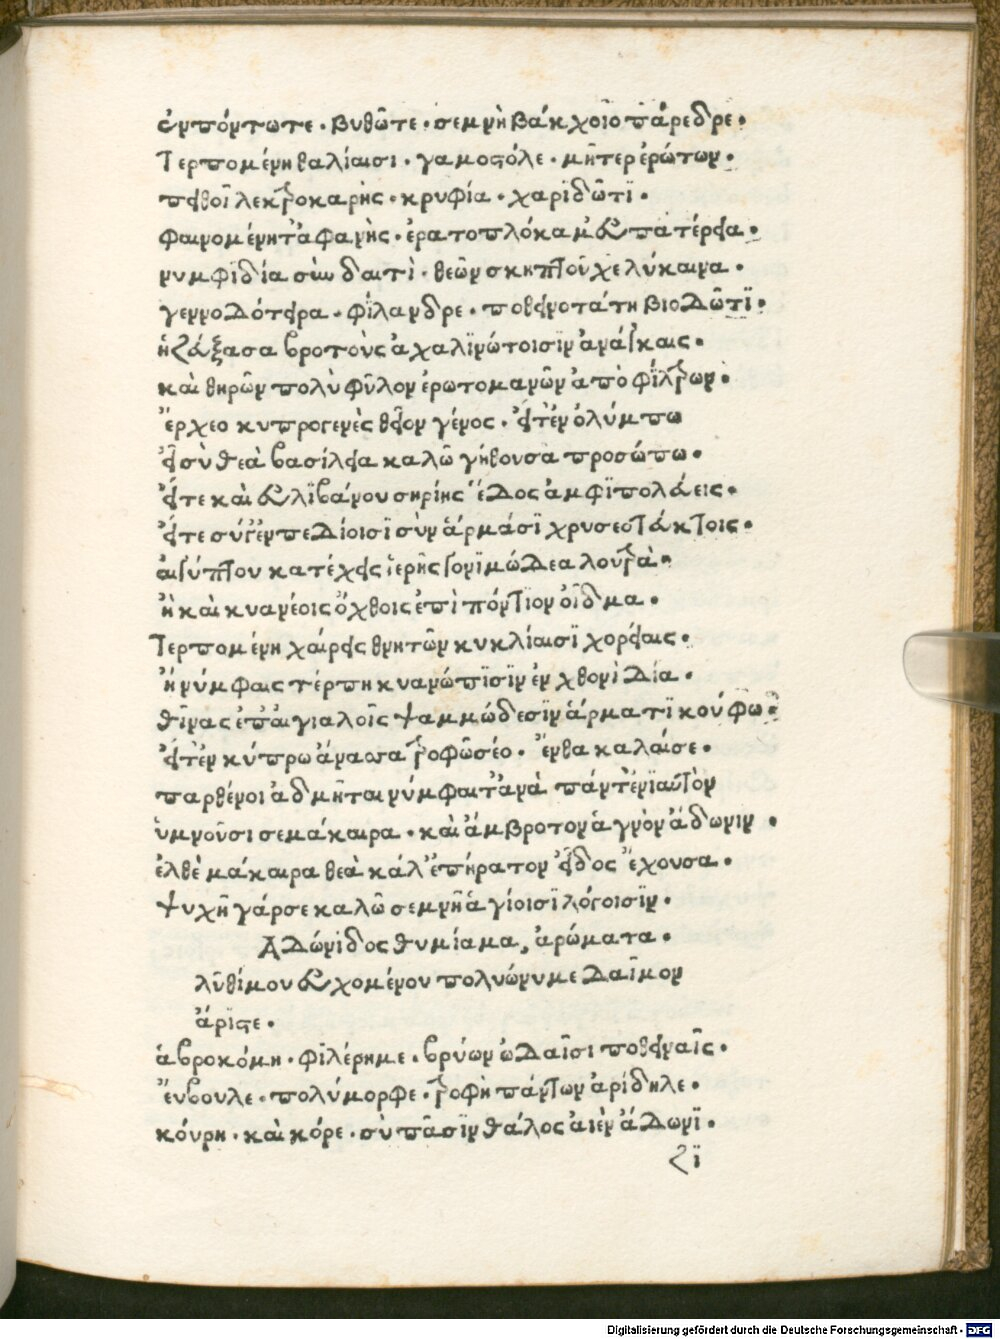 ἐν πόντω τε. βυθῶ τε. σεμνὴ βάκχοιο πάρεδρε.
Τερπομένη θαλίαισι. γαμοστόλε. μῆτερ ἐρώτων.
πειθοῖ λεκτροχαρὴς. κρυφία. χαριδῶτι.
φαινομένη τ' ἀφανὴς. ἐρατοπλόκαμ' εὐπατέρεια.
νυμφιδία σὺν δαιτὶ. θεῶν σκηπτοῦχε λύκαινα.
γεννοδότειρα. φίλανδρε. ποθεινοτάτη βιοδῶτι.
ἡ ζεύξασα βροτοὺς ἀχαλινώτοισιν ἀνάγκαις.
καὶ θηρῶν πολὺ φῦλον ἐρωτομανῶν ἀπὸ φίλτρων.
ἔρχεο κυπρογενὲς θεῖον γένος. εἴτ' ἐν ὀλύμπω
εἶ σὺ θεὰ βασίλεια καλῶ γήθουσα προσώπω.
εἴτε καὶ εὐλιβάνου συρίης ἕδος ἀμφιπολεύεις.
εἴτε σύ γ' ἐν πεδίοισι σὺν ἅρμασι χρυσεοτεύκτοις.
αἰγύπτου κατέχεις ἱερῆς γονιμώδεα λουτρὰ.
ἢ καὶ κυανέοις ὄχθοις ἐπὶ πόντιον οἶδμα.
Τερπομένη χαίρεις θνητῶν κυκλίαισι χορείαις.
ἢ νύμφαις τέρπη κυανώπισιν ἐν χθονὶ δία.
θῖνας ἐπ' αἰγιαλοῖς ψαμμώδεσιν ἅρματι κούφω.
εἴτ' ἐν κύπρω ἄνασσα τροφῶ σέο. ἔνθα καλαί σε.
παρθένοι ἄδμηται νύμφαι τ' ἀνὰ πάντ' ἐνιαυτὸν
ὑμνοῦσι σε μάκαιρα. καὶ ἄμβροτον ἁγνὸν ἄδωνιν.
ἐλθὲ μάκαιρα θεὰ κάλ' ἐπήρατον εἶδος ἔχουσα.
ψυχῆ γάρ σε καλῶ σεμνῆ ἁγίοισι λόγοισιν.
Ἀδώνιδος θυμίαμα, ἀρώματα.
λῦθί μου εὐχομένου πολυώνυμε δαῖμον
ἄριστε.
ἁβροκόμη. φιλέρημε. βρύων ὠδαῖσι ποθειναῖς.
ἔυβουλε. πολύμορφε. τροφὴ πάντων ἀρίδηλε.
κόυρη. καὶ κόρε. σὺ πᾶσιν θάλος αἰὲν ἄδωνι.
ζϊ
Digitalisierung gefördert durch die Deutsche Forschungsgemeinschaft - DFG